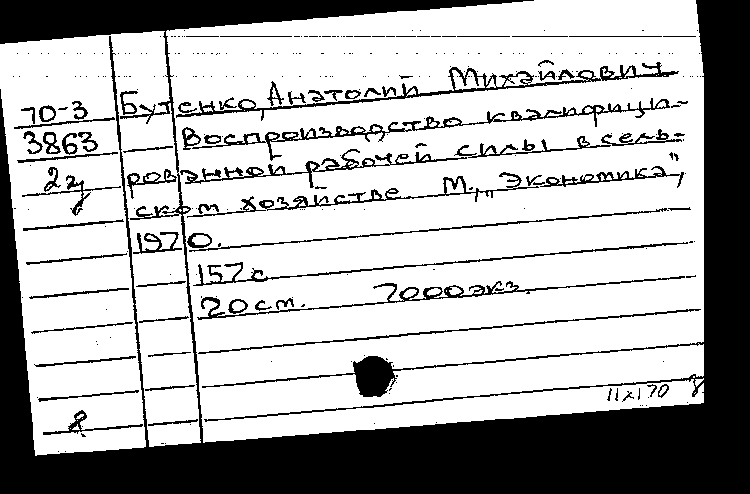 70-3 Бутенко, Анатолий Михайлович
3863 Воспроизводство квалифици-
2 рованной рабочей силы в сель-
ском хозяйстве. М., „Экономика",
1970.
157 с
20 см. 7000 экз.
11 X 170